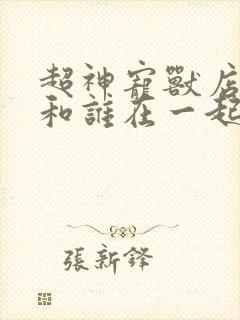 超神寵獸店
和誰在一起
張新鋒